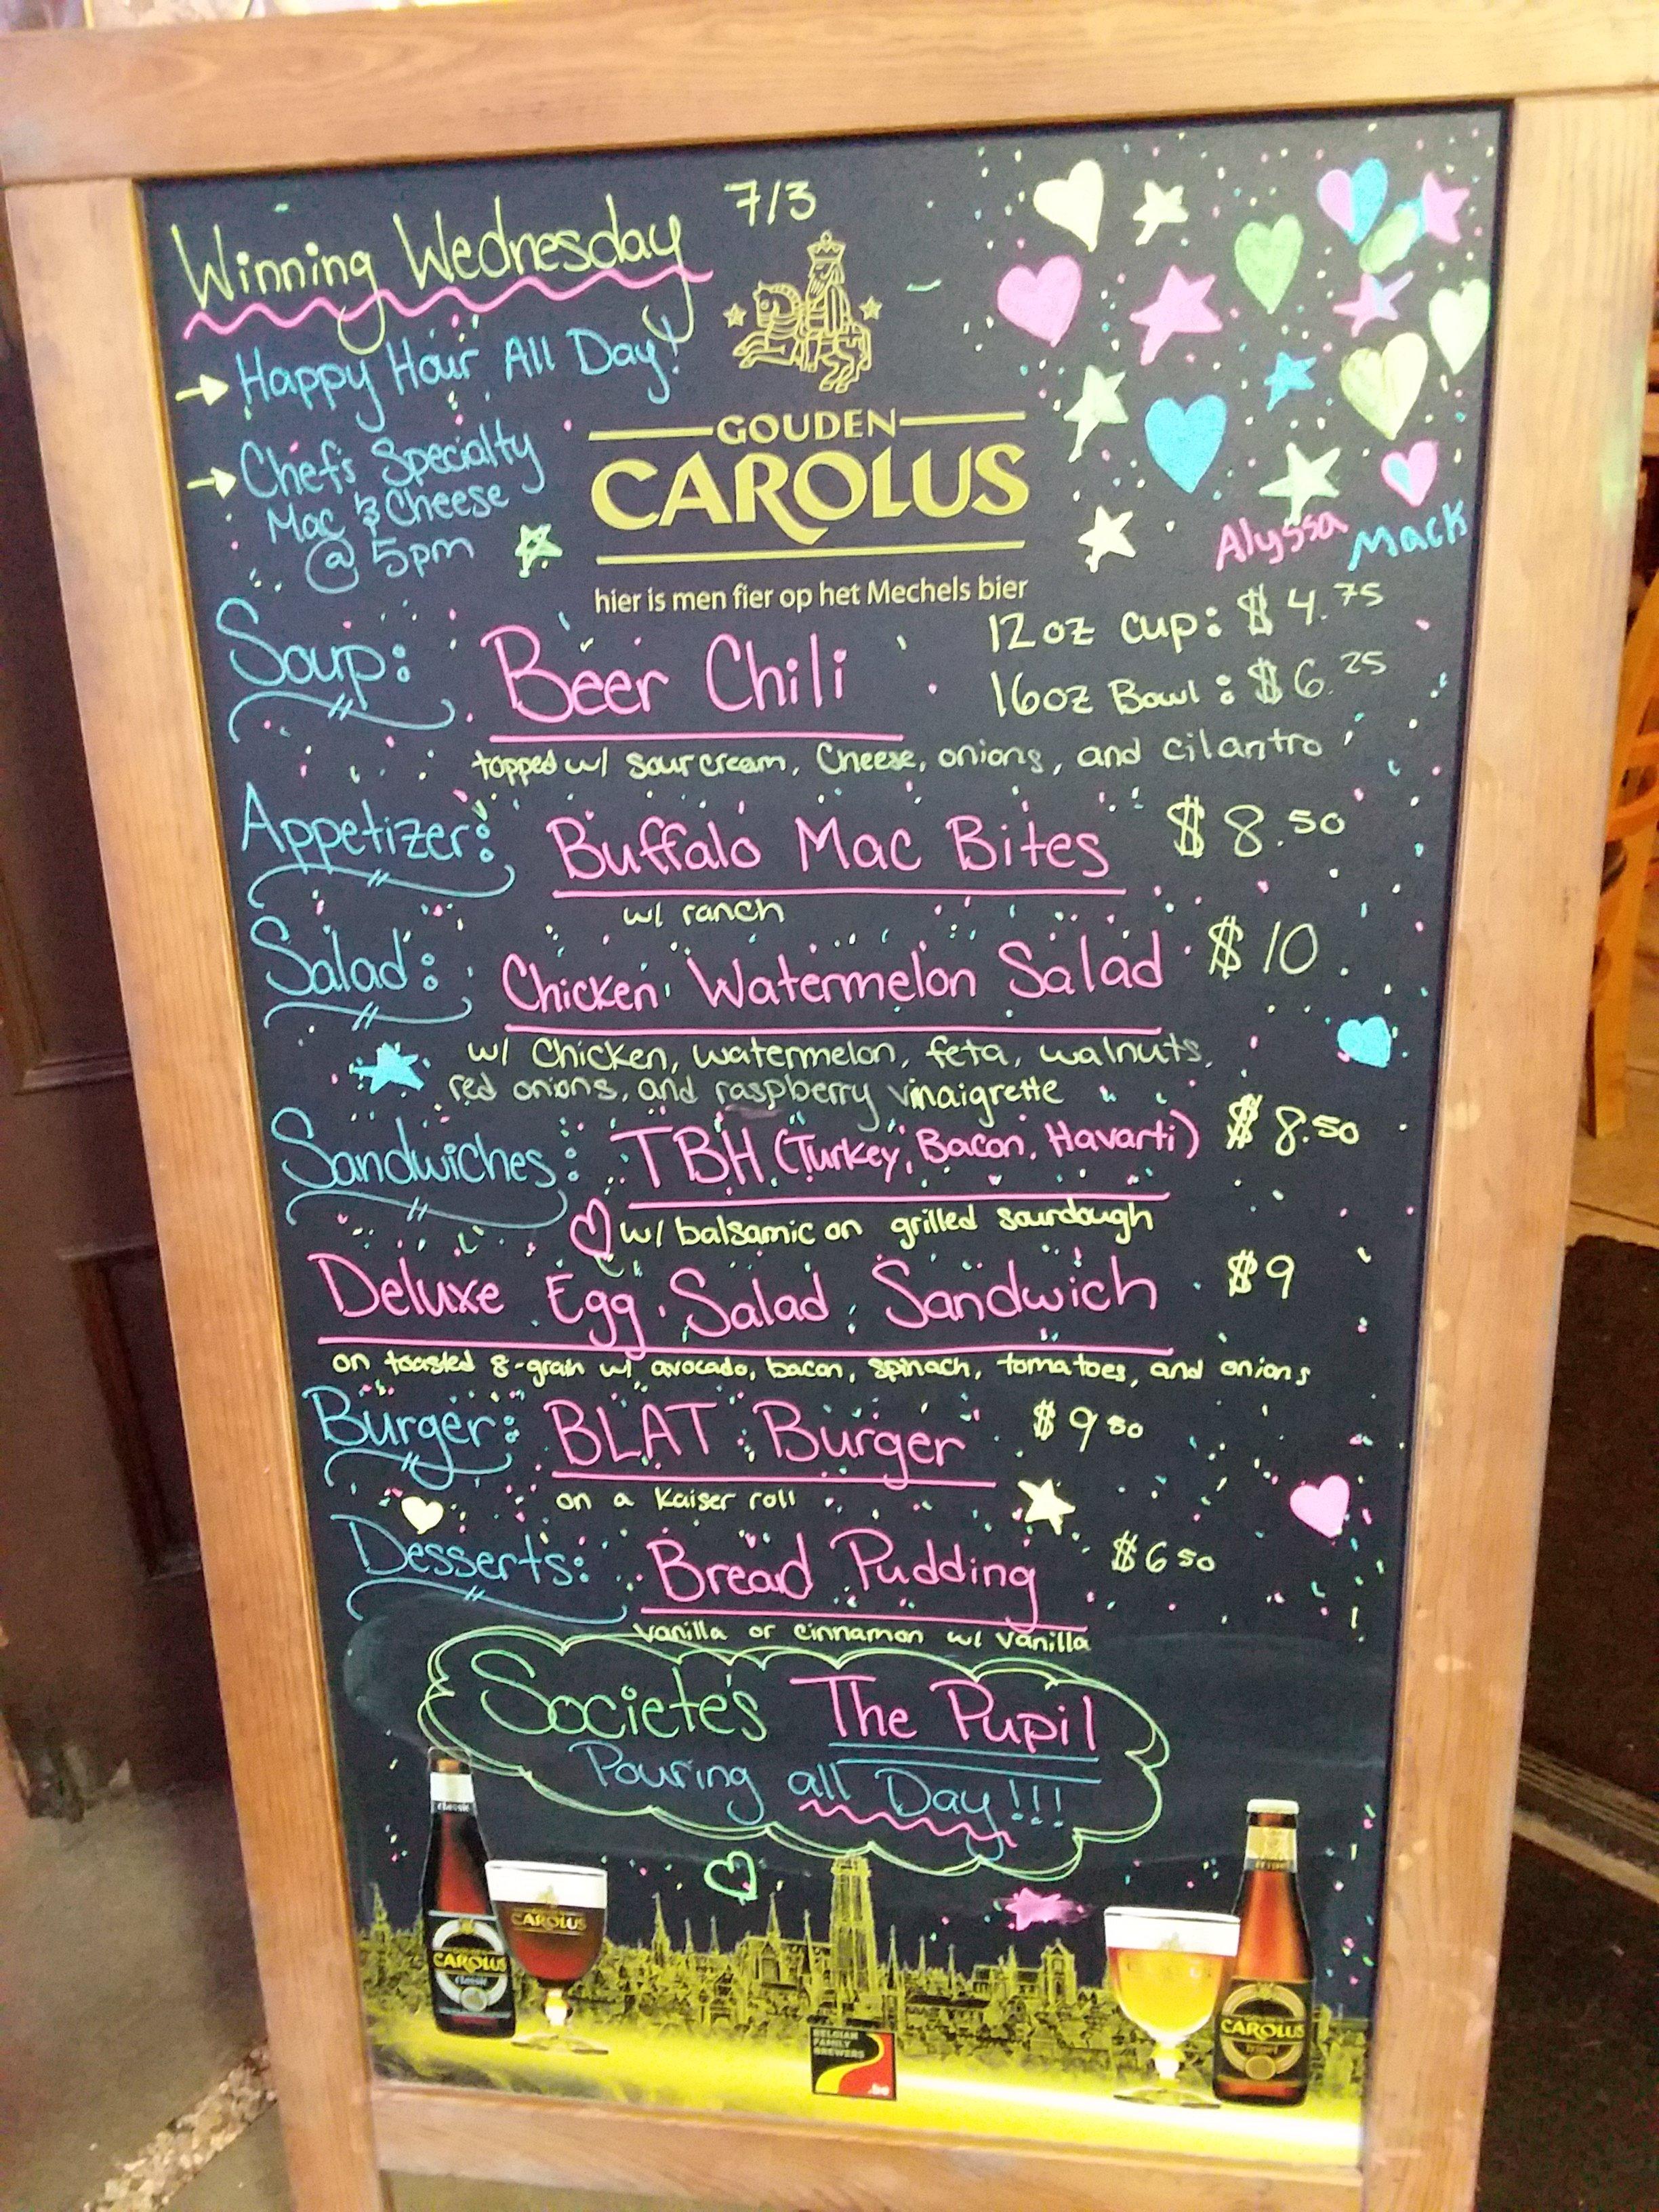 7/3
Winning Wednesday
→ Happy Hour All Day!
→ Chef's Specialty
Mac & Cheese
@ 5pm
GOUDEN
CAROLUS
hier is men fier op het Mechels bier
Alyssa Mack
Soup: Beer Chili
12oz Cup: $4.75
16oz Bowl: $6.25
topped w/ sour cream, Cheese, onions, and cilantro
Appetizer: Buffalo Mac Bites $8.50
w/ ranch
Salad: Chicken Watermelon Salad $10
w/ Chicken, watermelon, feta, walnuts,
red onions, and raspberry vinaigrette
Sandwiches: TBH (Turkey, Bacon, Havarti) $8.50
w/ balsamic on grilled sourdough
Deluxe Egg Salad Sandwich $9
on toasted 8-grain w/ avocado, bacon, spinach, tomatoes, and onions
Burger: BLAT Burger $9.50
on a Kaiser roll
Desserts: Bread Pudding $6.50
Vanilla or cinnamon w/ vanilla
Societe's The Pupil
Pouring all Day!!!
classic
CAROLUS
CAROLUS
classic
CAROLUS
BELGIAN
FAMILY
BREWERS
.be